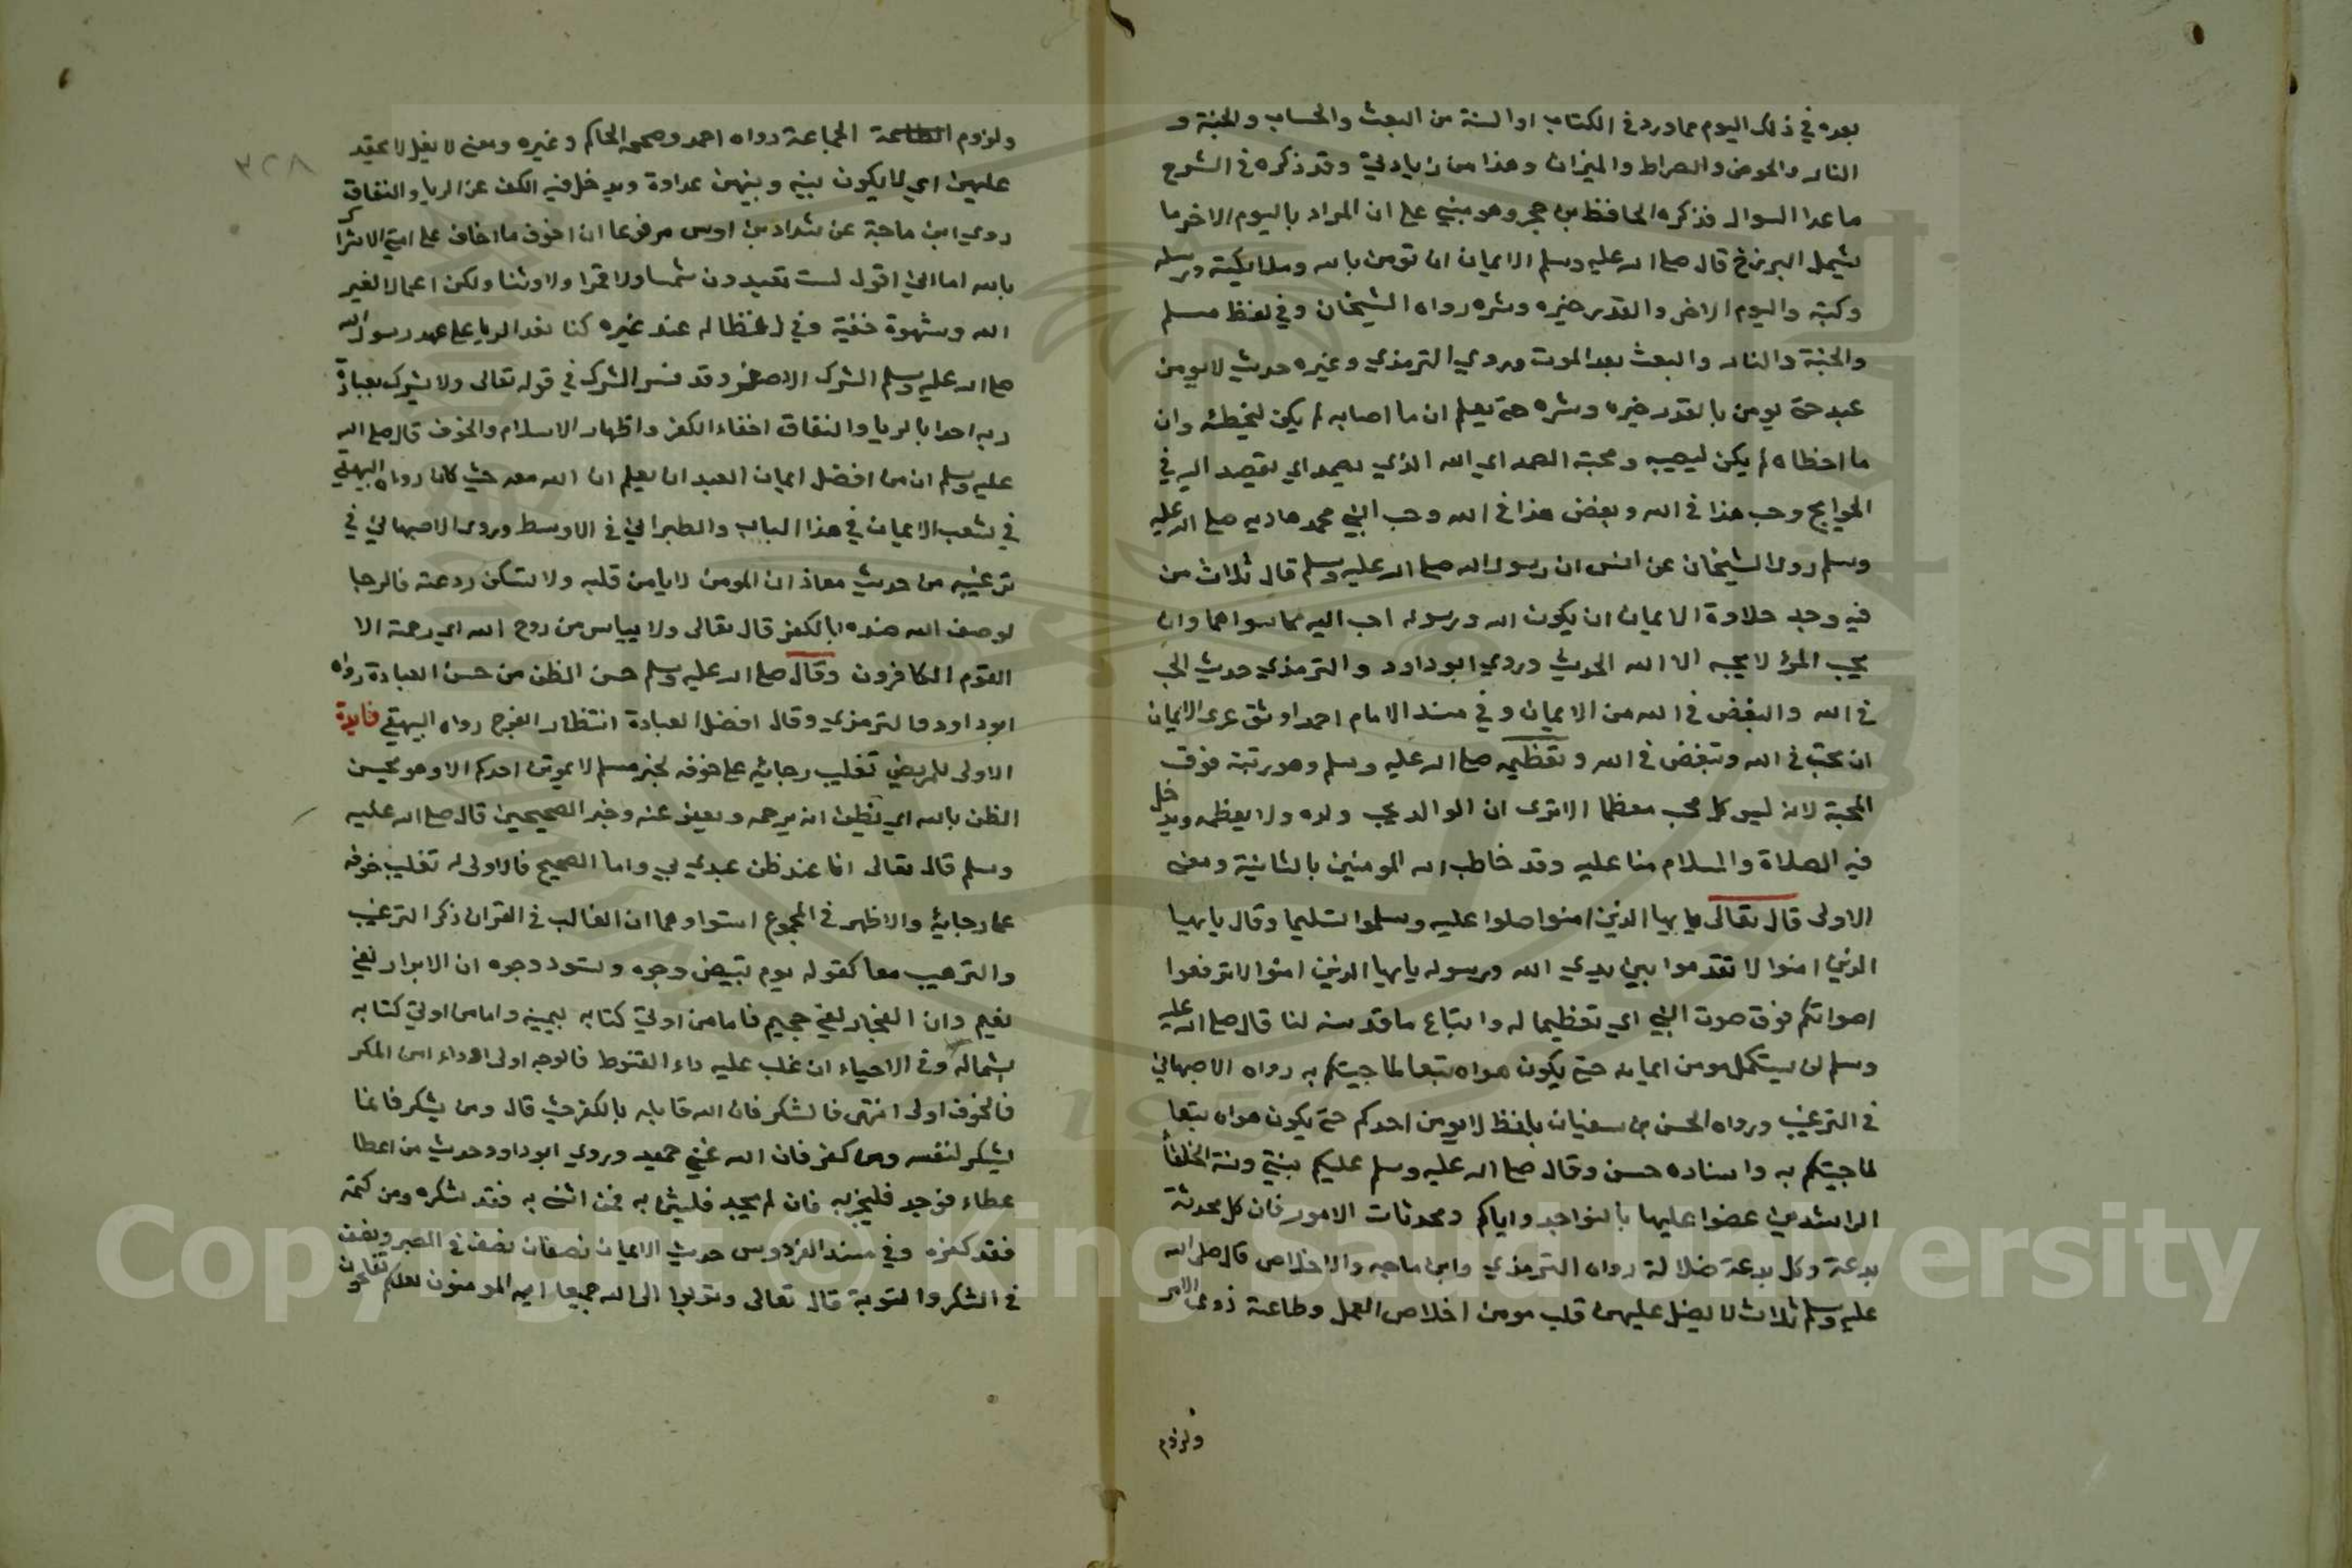 بعده في ذلك اليوم مما ورد في الكتاب او السنة من البعث والحساب والجنة و
النار والحوض والصراط والميزان وهذا من زيادتي وقد ذكره في الشرح
ما عدا السوال فذكره الحافظ بن حجر وهو مبني على ان المراد باليوم الاخر ما
يشمل البرزخ قال صلى الله عليه وسلم الايمان ان تومن بالله وملايكته ورسله
وكتبه واليوم الاخر والقدر خيره وشره رواه الشيخان وفي لفظ مسلم
والجنة والنار والبعث بعد الموت وروي الترمذي وغيره حديث لا يومن
عبد حتى يومن بالقدر خيره وشره حتى يعلم ان ما اصابه لم يكن ليخطئه وان
ما اخطاه لم يكن ليصيبه ومحبة الصمد اي الله الذي يصمد اي يقصد اليه في
الحوايج وحب هذا في الله وبغض هذا في الله وحب النبي محمد هاديه صلى الله عليه
وسلم روى الشيخان عن انس ان رسول الله صلى الله عليه وسلم قال ثلاث من
فيه وجد حلاوة الايمان ان يكون الله ورسوله احب اليه مما سواهما وان
يحب المرؤ لا يحبه الا الله الحديث وروي ابو داود والترمذي حديث الحب
في الله والبغض في الله من الايمان وفي مسند الامام احمد اوثق عرى الايمان
ان تحب في الله وتبغض في الله وتعظيمه صلى الله عليه وسلم وهو رتبة فوق
المحبة لانه ليس كل محب معظما الا ترى ان الوالد يحب ولده ولا يعظمه ويدخل
فيه الصلاة والسلام منا عليه وقد خاطب الله المومنين بالثانية ومعنى
الاولى قال تعالى يا يها الذين امنوا صلوا عليه وسلموا تسليما وقال يا يها
الذين امنوا لا تقدموا بين يدي الله ورسوله يا يها الذين امنوا لا ترفعوا
اصواتكم فوق صوت النبي اي تعظيما له واتباع ما قد سنه لنا قال صلى الله عليه
وسلم لن يستكمل مومن ايمانه حتى يكون هواه تبعا لما جيتكم به رواه الاصبهاني
في الترغيب ورواه الحسن بن سفيان بلفظ لا يومن احدكم حتى يكون هواه تبعا
لما جيتكم به واسناده حسن وقال صلى الله عليه وسلم عليكم بسنتي وسنة الخلفاء
الراشدين عضوا عليها بالنواجد واياكم ومحدثات الامور فان كل محدثة
بدعة وكل بدعة ضلالة رواه الترمذي وابن ماجه والاخلاص قال صلى الله
عليه وسلم ثلاث لا يغل عليهن قلب مومن اخلاص العمل وطاعة ذوي الامر
ولزوم
٣٢٨
ولزوم الجماعة رواه احمد وصححه الحاكم وغيره ومعنى لا يغل لا يحقد
عليهن اي لا يكون بينه وبينهن عداوة ويدخل فيه الكف عن الريا والنفاق
روي ابن ماجة عن شداد بن اوس مرفوعا ان اخوف ما اخاف على امتي الاشراك
بالله اما اني اقول لست تعبدون شمسا ولا قمرا ولا وثنا ولكن اعمالا لغير
الله وشهوة خفية وفي لفظ له عند غيره كنا نعد الريا على عهد رسول الله
صلى الله عليه وسلم الشرك الاصغر وقد فسر الشرك في قوله تعالى ولا يشرك بعبادة
ربه احدا بالريا والنفاق اخفاء الكفر واظهار الاسلام والخوف قال صلى الله
عليه وسلم ان من افضل ايمان العبد ان يعلم ان الله معه حيث كان رواه البيهقي
في شعب الايمان في هذا الباب والطبراني في الاوسط وروى الاصبهاني في
ترغيبه من حديث معاذ ان المومن لا يامن قلبه ولا تسكن روعته فالرجا
لوصف الله ضده بالكفر قال تعالى ولا ييياس من روح الله اي رحمة الا
القوم الكافرون وقال صلى الله عليه وسلم حسن الظن من حسن العبادة رواه
ابو داود والترمذي وقال افضل العبادة انتظار الفرج رواه البيهقي فايدة
الاولى للمريض تغليب رجايه على خوفه لخبر مسلم لا يموتن احدكم الا وهو يحسن
الظن بالله اي يظن انه يرحمه ويعفو عنه وخبر الصحيحين قال صلى الله عليه
وسلم قال تعالى انا عند ظن عبدي بي واما الصحيح فالاولى له تغليب خوفه
على رجايه والاظهر في المجموع استواوهما ان الغالب في القران ذكر الترغيب
والترهيب معا كقوله يوم تبيض وجوه وتسود وجوه ان الابرار لفي
نعيم وان الفجار لفي جحيم فاما من اوتي كتابه بيمينه واما من اوتي كتابه
بشماله وفي الاحياء ان غلب عليه داء القنوط فالرجا اولى او داء امن المكر
فالخوف اولى انتهى فالشكر فان الله قابله بالكفر حيث قال ومن يشكر فانما
يشكر لنفسه ومن كفر فان الله غني حميد وروي ابو داود حديث من اعطا
عطاء فوجد فليجز به فان لم يجد فليثن به فمن اثنى به فقد شكره ومن كتمه
فقد كفره وفي مسند الفردوس حديث الايمان نصفان نصف في الصبر ونصف
في الشكر والتوبة قال تعالى وتوبوا الى الله جميعا ايه المومنون لعلكم تفلحون
Copyright © King Saud University
1957